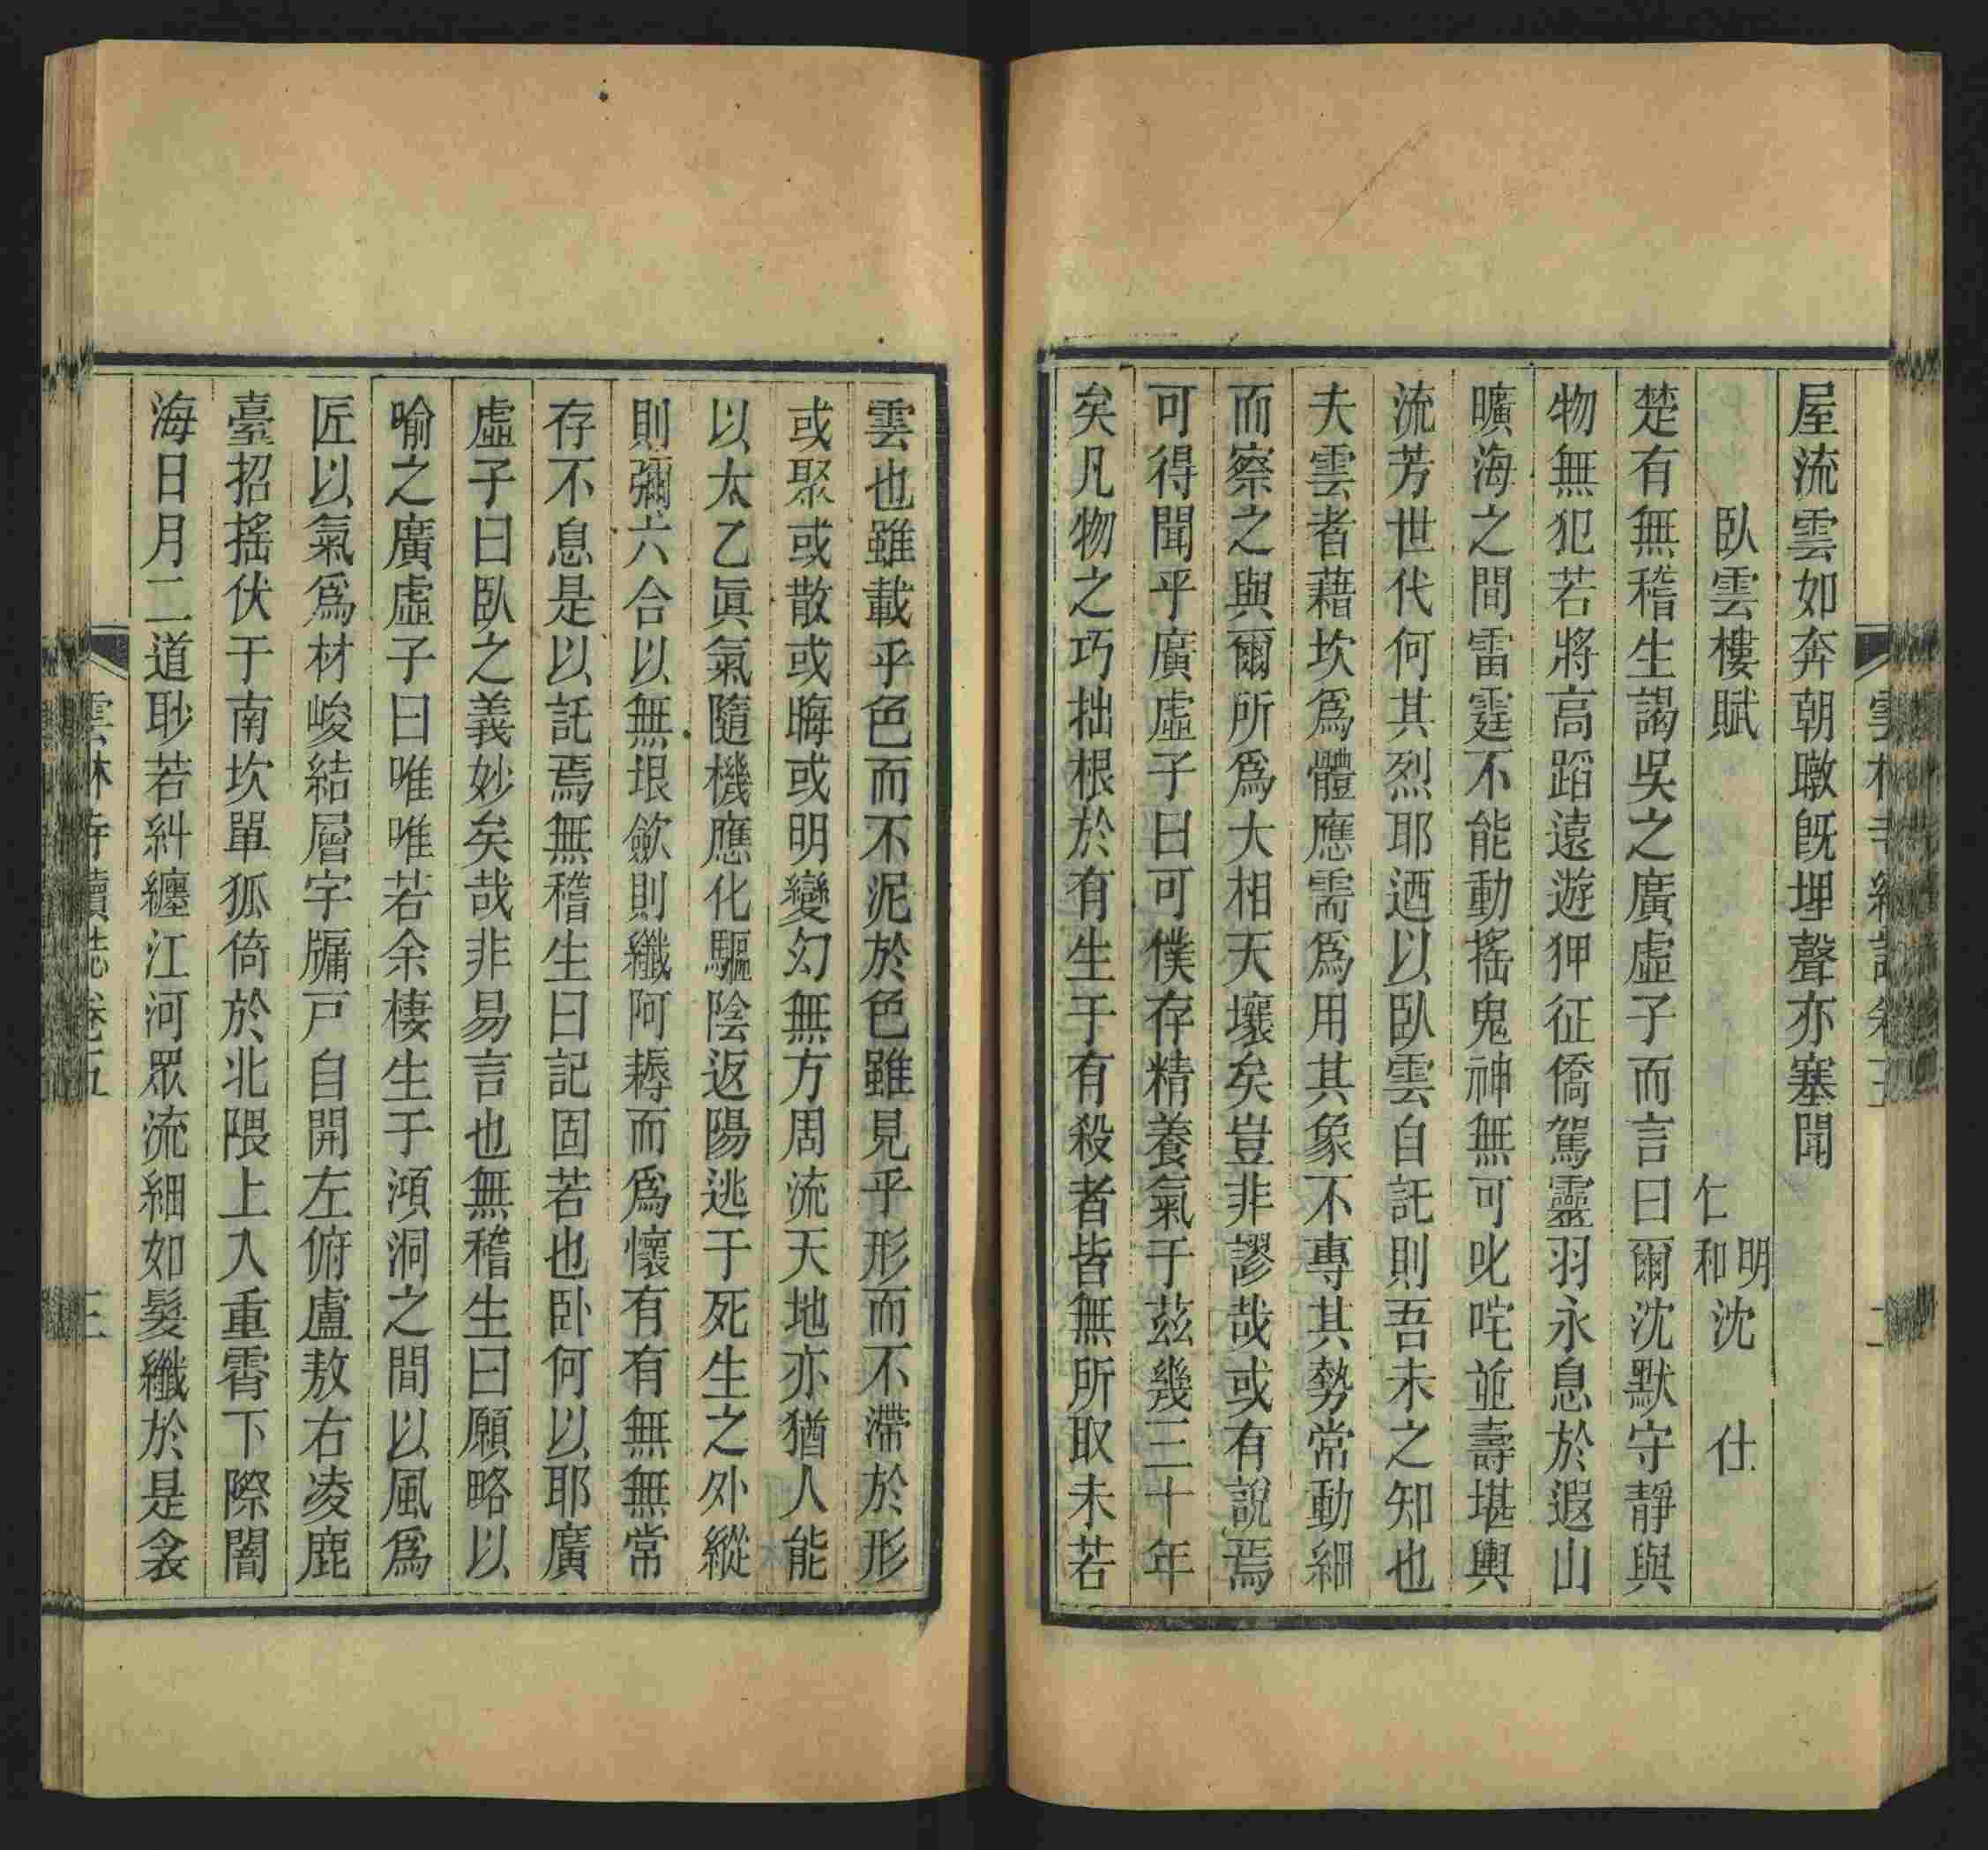 屋流雲如奔朝暾旣埋聲亦塞聞
臥雲樓賦
明
仁和
沈仕
楚有無稽生謁吳之廣虛子而言曰爾沈默守靜與
物無犯若將高蹈遠遊狎征僑駕靈羽永息於遐山
曠海之間雷霆不能動搖鬼神無可叱咤並壽堪輿
流芳世代何其烈耶迺以臥雲自託則吾未之知也
夫雲者藉坎爲體應需爲用其象不專其勢常動細
而察之與爾所爲大相天壤矣豈非謬哉或有說焉
可得聞乎廣虛子曰可僕存精養氣于茲幾三十年
矣凡物之巧拙根於有生于有殺者皆無所取未若
雲也雖載乎色而不泥於色雖見乎形而不滯於形
或聚或散或晦或明變幻無方周流天地亦猶人能
以太乙眞氣隨機應化驅陰返陽逃于死生之外縱
則彌六合以無垠歛則纖阿耨而爲懷有有無無常
存不息是以託焉無稽生曰記固若也卧何以耶廣
虛子曰臥之義妙矣哉非易言也無稽生曰願略以
喻之廣虛子曰唯唯若余棲生于澒洞之間以風爲
匠以氣爲材峻結層宇牖戸自開左俯盧敖右凌鹿
臺招搖伏于南坎單狐倚於北隈上入重霄下際闇
海日月二道眇若糾纏江河眾流細如髮纖於是衾
雲林寺續誌卷五
三